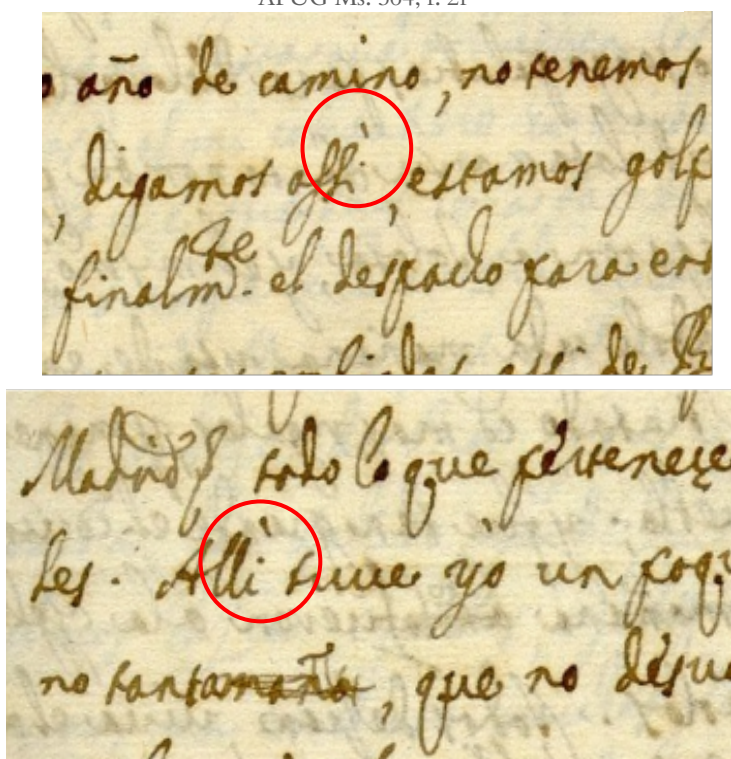 APUG Ms. 564, f. 2r
o año de camino, no tenemos
, digamos assì, estamos golf
finalm.te el despacho para en
assi de
Madrid, todo lo que perteneçe
les. Allì tuue yò un poq
no tanta, que no